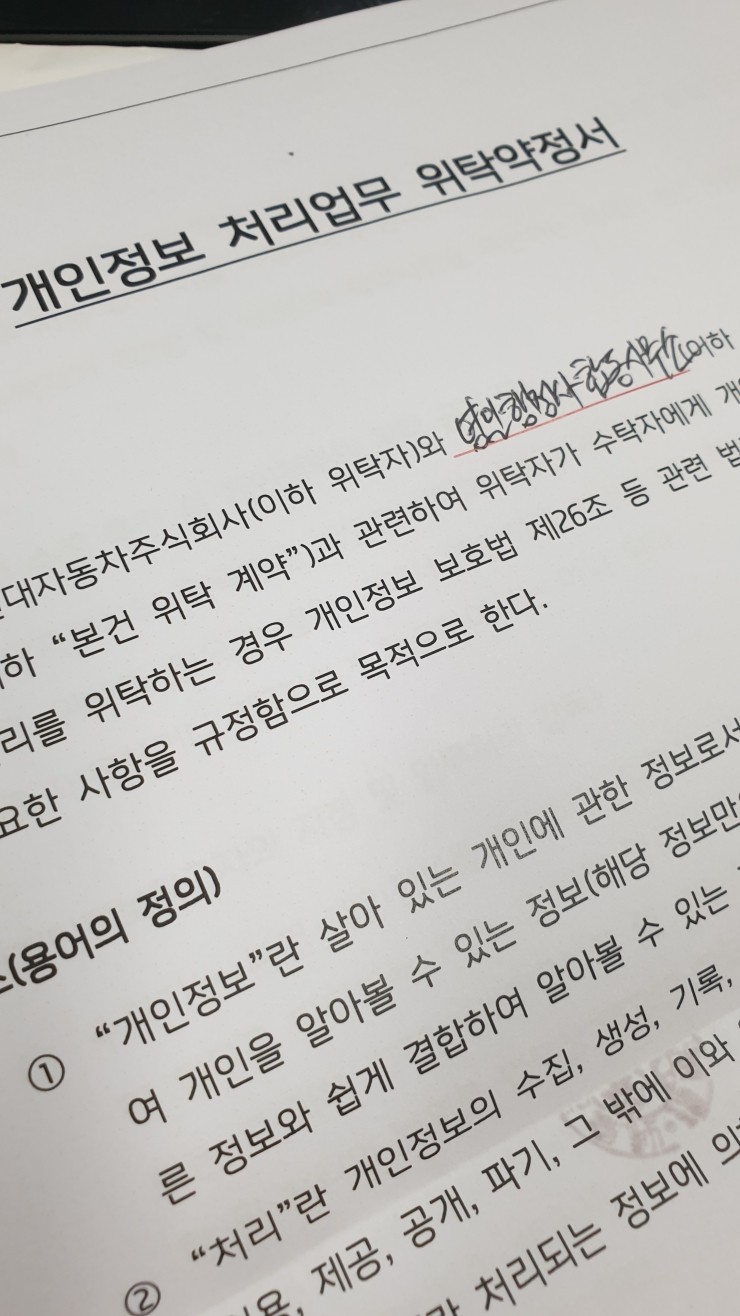 개인정보 처리업무 위탁약정서
대자동차주식회사(이하 위탁자)와 행정사합동사무소(이하
하 “본건 위탁 계약”)과 관련하여 위탁자가 수탁자에게 개
리를 위탁하는 경우 개인정보 보호법 제26조 등 관련 법
요한 사항을 규정함으로 목적으로 한다.
(용어의 정의)
① “개인정보”란 살아 있는 개인에 관한 정보로서
여 개인을 알아볼 수 있는 정보(해당 정보만
른 정보와 쉽게 결합하여 알아볼 수 있는
② “처리”란 개인정보의 수집, 생성, 기록,
용, 제공, 공개, 파기, 그 밖에 이와
처리되는 정보에 의